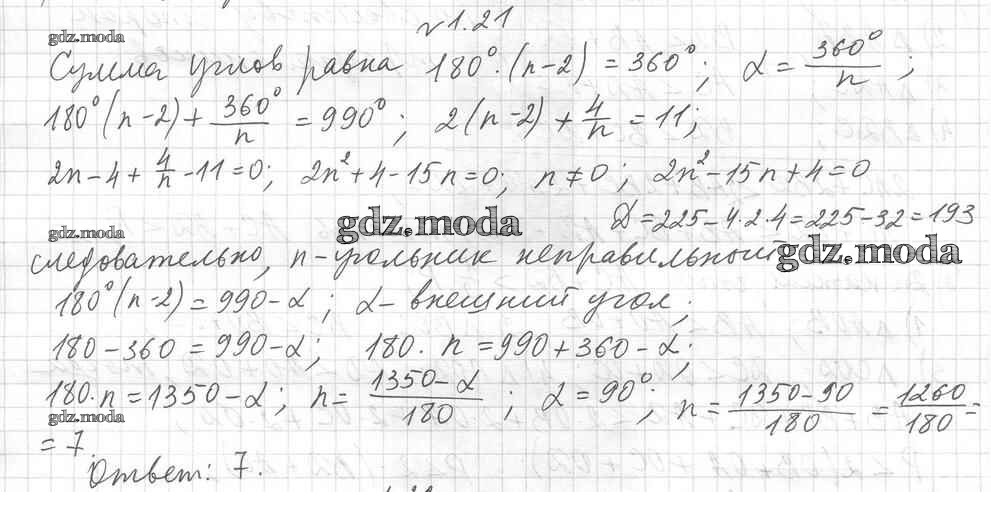 №1.21
gdz.moda
Сумма углов равна 180°·(n-2) = 360°; α = 360°/n ;
180°(n-2) + 360°/n = 990°; 2(n-2) + 4/n = 11;
2n-4+4/n-11=0; 2n²+4-15n=0; n≠0; 2n²-15n+4=0
gdz.moda
gdz.moda
Д=225-4·2·4=225-32=193
следовательно, n-угольник неправильный
gdz.moda
180°(n-2) = 990-α; α- внешний угол;
180-360 = 990-α; 180·n=990+360-α;
180·n=1350-α; n= 1350-α/180 ; α=90°; n= 1350-90/180 = 1260/180 =
gdz.moda
= 7.
Ответ: 7.